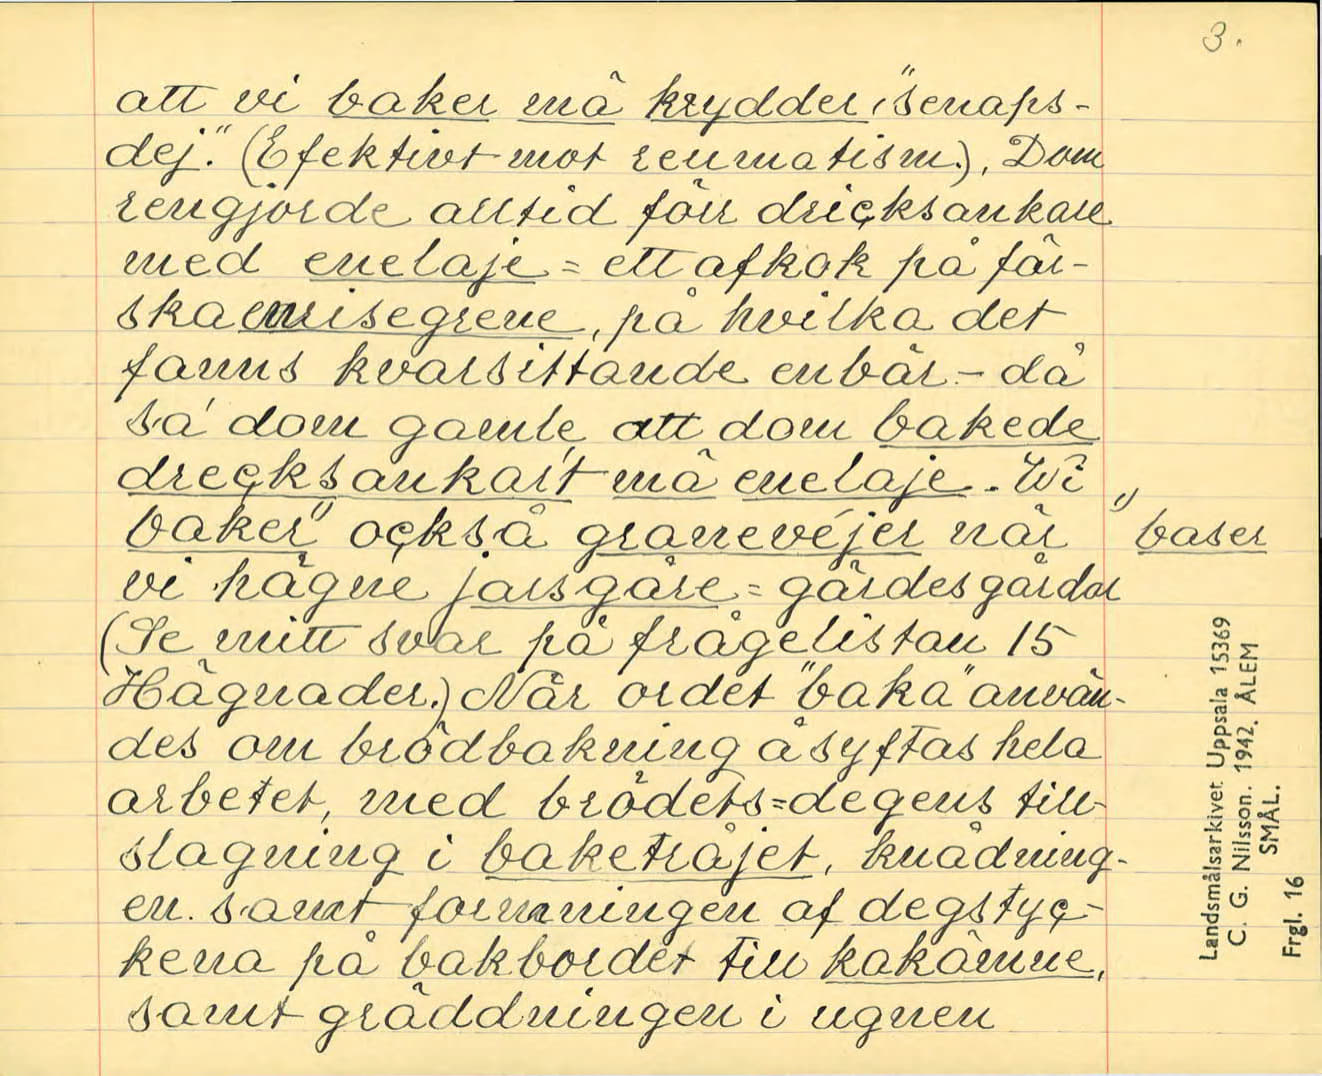 3.
att vi baker må krydder, "senaps-
dej." (Efektivt mot reumatism.), Dom
rengjorde alltid förr dricksankare
med enelaje = ett afkok på fär-
ska enrisegrene, på hvilka det
fanns kvarsittande enbär - då
sa' dom gamle att dom bakede
drecksankar't må enelaje. Wi
"baker" också granevéjer när "baser
vi hägne jarsgåre = gärdesgårdar
(Se mitt svar på frågelistan 15
Hägnader.) När ordet "baka" använ-
des om brödbakning åsyftas hela
arbetet, med brödets=degens till-
slagning i baketråjet, knådning-
en. samt formningen af degstyc-
kena på bakbordet till kakämne,
samt gräddningen i ugnen
Landsmålsarkivet Uppsala 15369
C. G. Nilsson. 1942. ÅLEM
SMÅL.
Frgl. 16